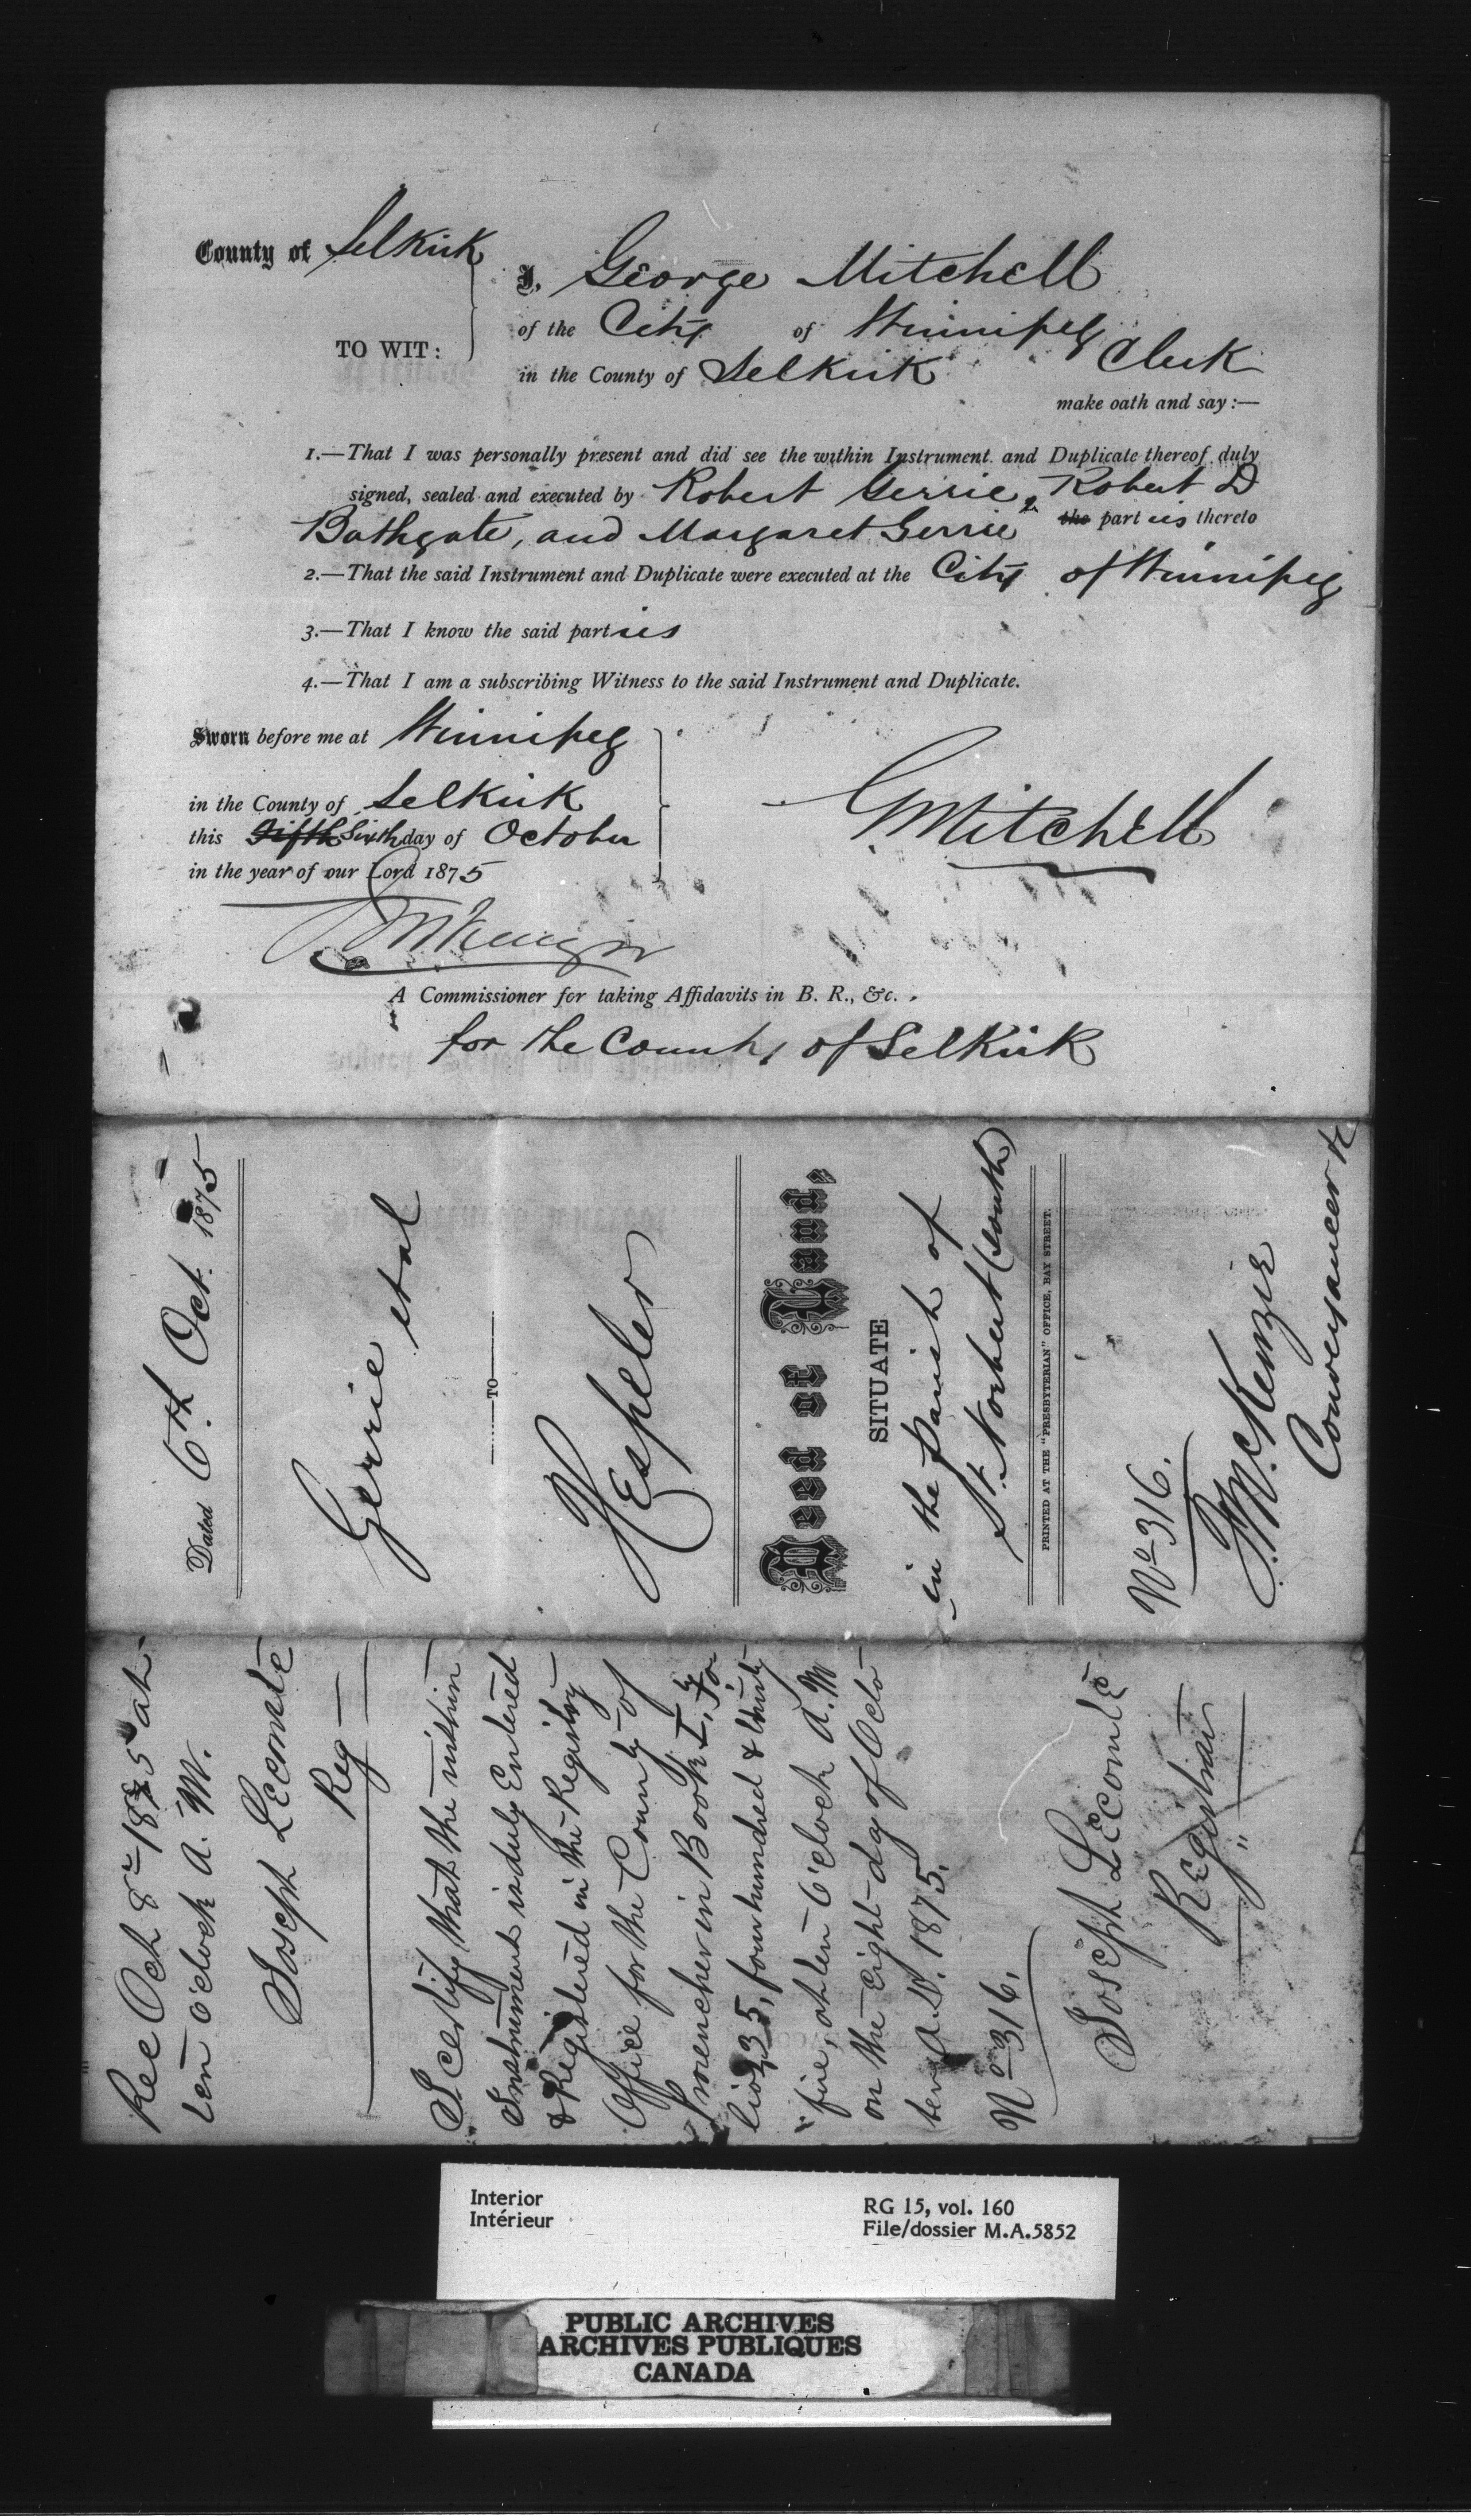 County of Selkirk
TO WIT:
I, George Mitchell
of the City of Winnipeg
in the County of Selkirk Clerk
make oath and say:—
1.—That I was personally present and did see the within Instrument and Duplicate thereof duly
signed, sealed and executed by Robert Gerrie, Robert D
Bathgate, and Margaret Gerrie the part ies thereto
2.—That the said Instrument and Duplicate were executed at the City of Winnipeg
3.—That I know the said parties
4.—That I am a subscribing Witness to the said Instrument and Duplicate.
Sworn before me at Winnipeg
in the County of Selkirk
this Fifth Sixth day of October
in the year of our Lord 1875
GMitchell
A Commissioner for taking Affidavits in B. R., &c.
for the County of Selkirk
Dated 6th Oct. 1875
Gerrie et al
TO
Hespeler
Deed of Land,
SITUATE
in the Parish of
St. Norbert (south)
PRINTED AT THE "PRESBYTERIAN" OFFICE, BAY STREET.
No 316.
McKenzie
Conveyancer &c
Rec Oct 8th 1875 at
ten o'clock A.M.
Joseph LEcomte
Reg
I certify that the within
Instrument is duly Entered
& Registered in the Registry
Office for the County of
Provencher in Book I, Fo
lio 435, four hundred & thirty
five, at ten O'clock A.M
on the Eight dy of Octo
ber A.D. 1875.
No 316.
Joseph LEcomte
Registrar
Interior
Intérieur
RG 15, vol. 160
File/dossier M.A.5852
PUBLIC ARCHIVES
ARCHIVES PUBLIQUES
CANADA